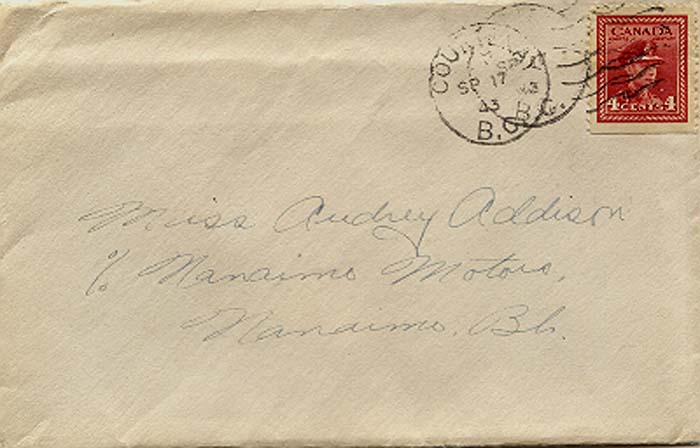 CANADA
4 CENTS 4
COU
SP 17
43
B.C.
B.C.
Miss Audrey Addison
% Nanaimo Motors,
Nanaimo, B.C.